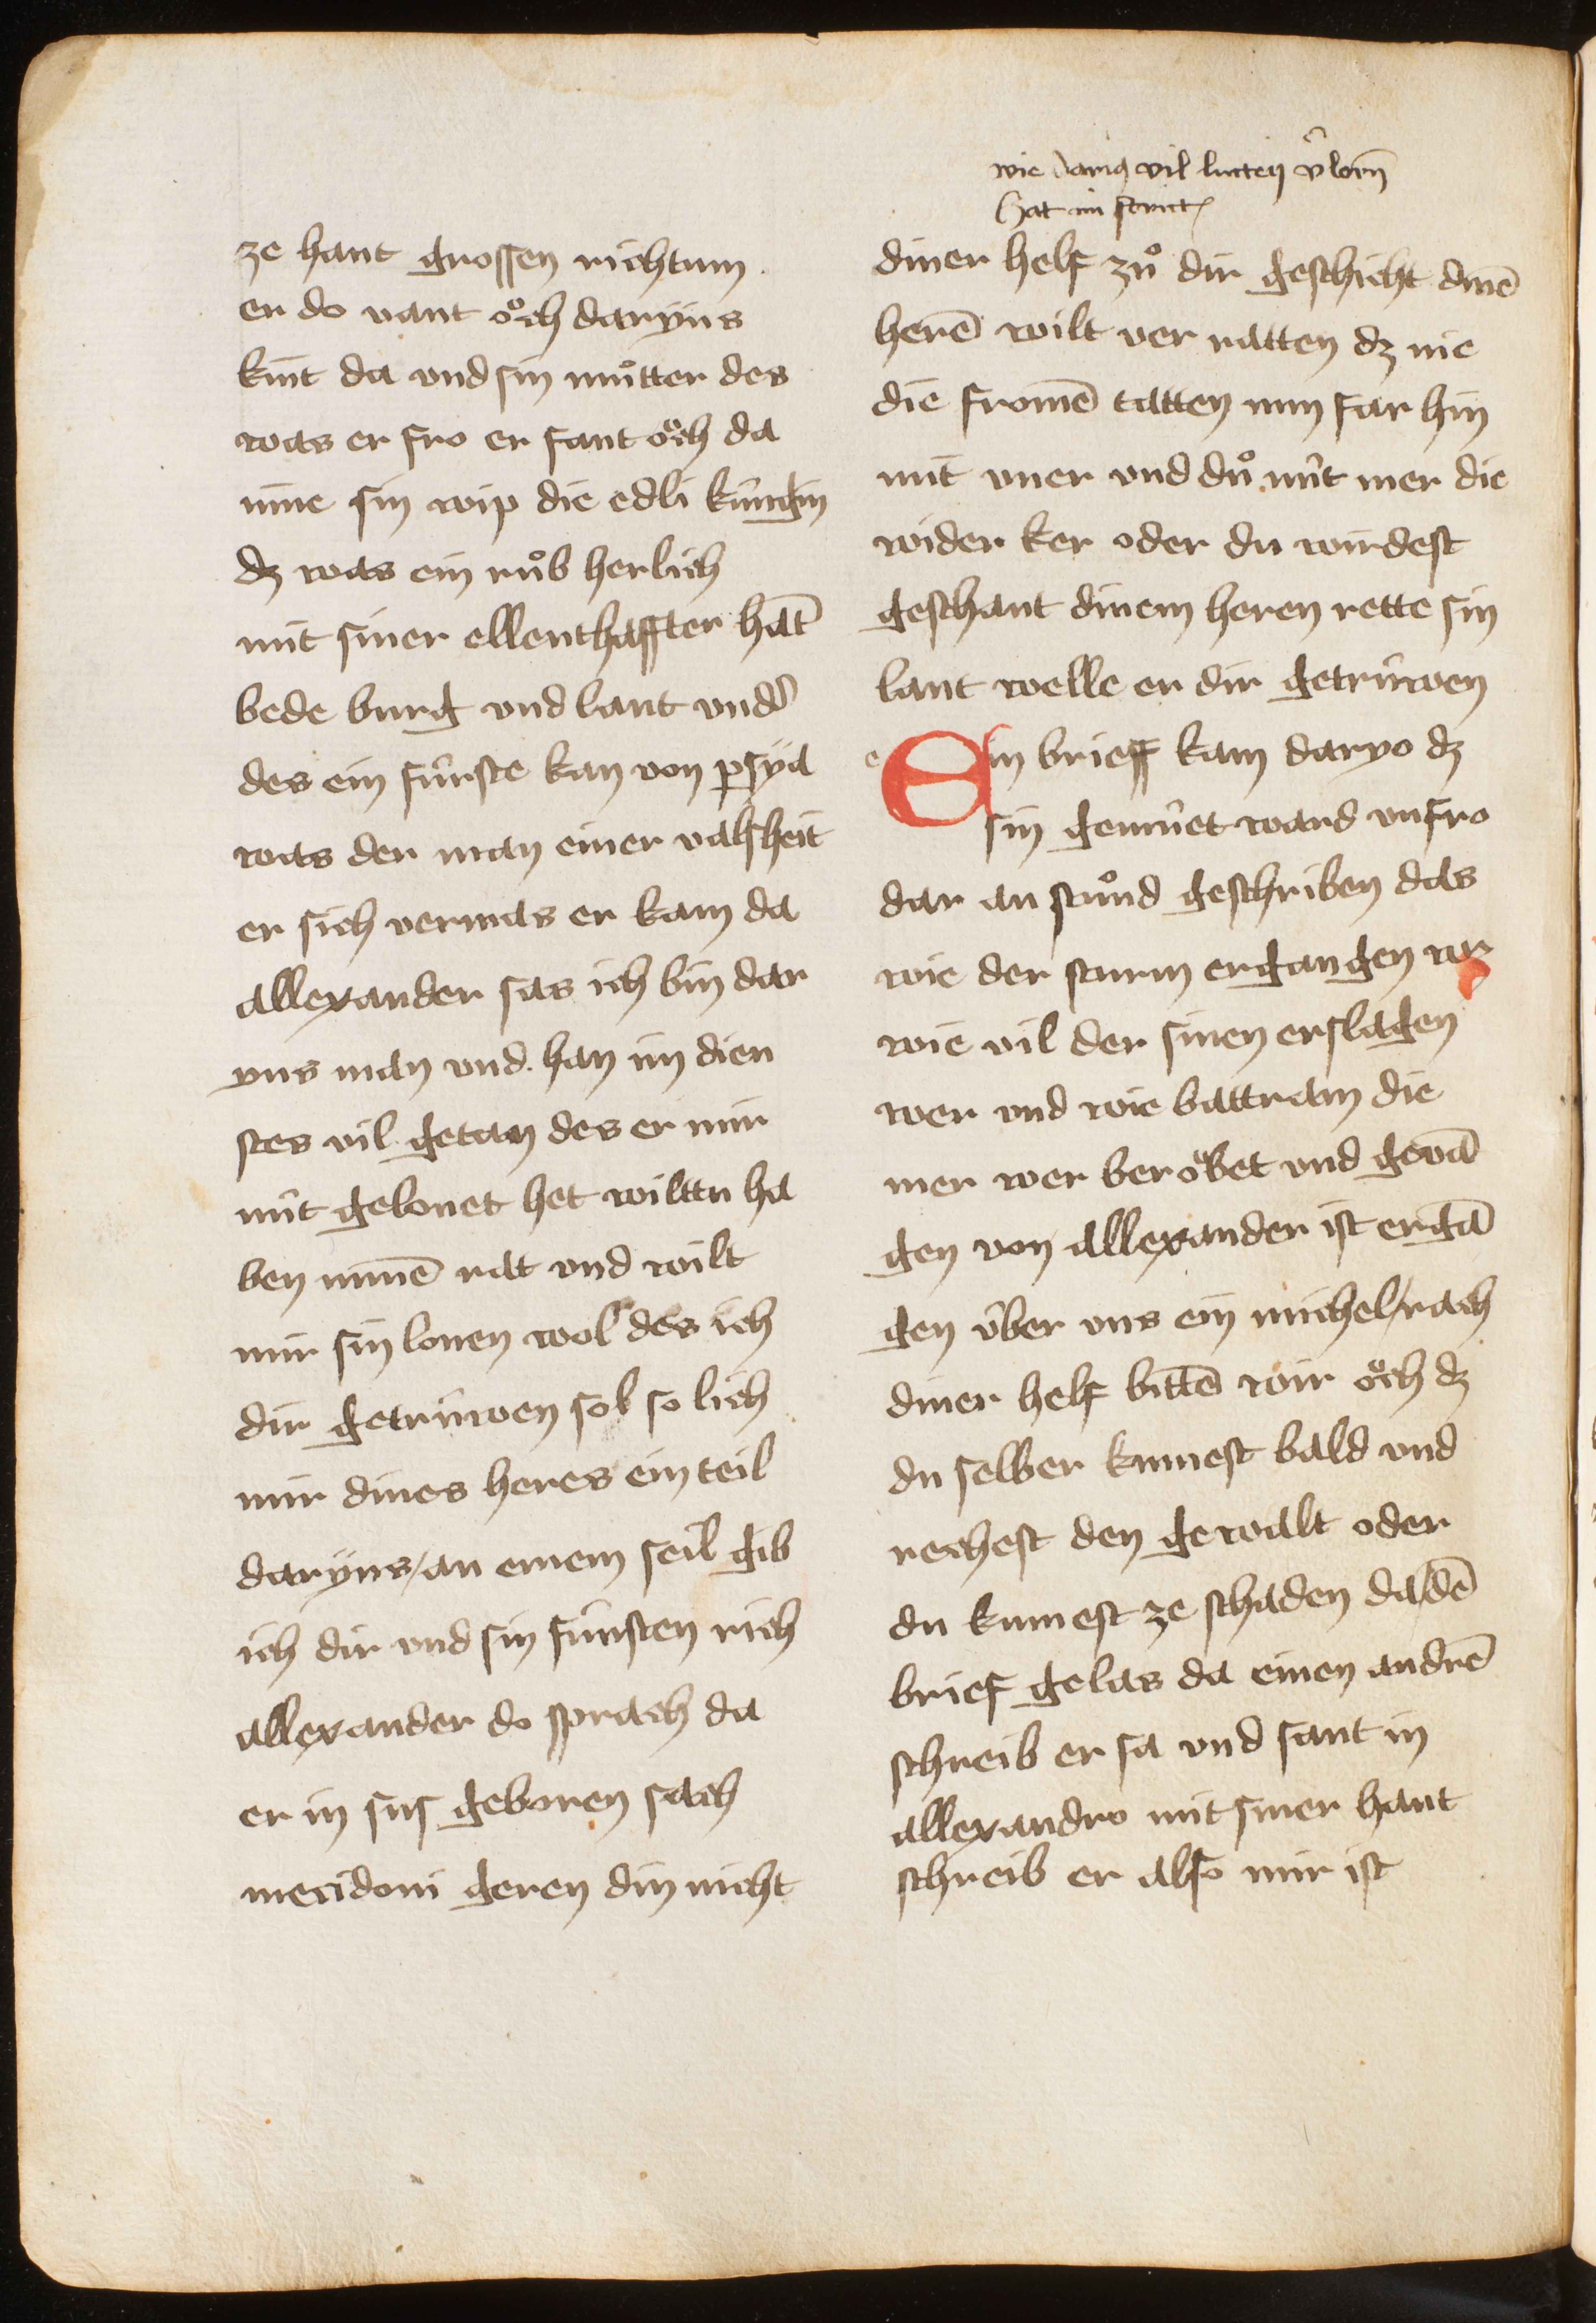 wie darius vil lutten v̂lorn̄
hat im strit
ze hant grossen richtum
er do vant oͧch daryus
kint da vnd sin muͦtter des
was er fro er fant oͧch da
inne sin wip die edli kûngin
dz was ein roͧb herlich
mit siner ellenthaffter hāt
bede burg vnd lant vnd̾
des ein fûrste kan von ꝑsya
was der man einer valsheit
er sich vermas er kam da
allexander sas ich bin dar
yus man vnd han im dien
stes vil getan des er mir
nût gelonet het wilttu ha
ben minē rat vnd wilt
mir sin lonen wol des ich
dir getrûwen sol so lich
mir dines heres ein teil
daryus / an einem seil gib
ich dir vnd sin fûrsten rich
allexander do sprach da
er in sus geboren sach
mecidoni geren din nicht
diner helf zuͦ dir geschicht dinē
herē wilt ver ratten dz nie
die fromē tatten nun far hin
mit vner vnd duͦ nût mer die
wider ker oder du wirdest
geschant dinem heren rette sin
lant welle er dir getrûwen
e Ein brieff kam daryo dz
sin gemuͤet ward vnfro
dar an stuͦnd geschriben das
wie der sturm ergangen wz
wie vil der sinen erslagen
wer vnd wie battram die
mer wer beroͧbet vnd gevā
gen von allexander ist ergā
gen v̂ber vns ein michel / rach
diner helf bittē wir oͧch dz
du selber kumest bald vnd
rechest den gewalt oder
du kumest ze schaden da / dē
brief gelas da einen andrē
schreib er sa vnd sant in
allexandro mit siner hant
schreib er also mir ist